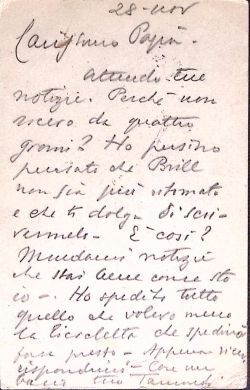 28-nov
Carissimo Papà-
Attendo tue
notizie. Perchè non
ricevo da quattro
giorni? Ho persino
pensato che Brill
non sia più ritornato
e che ti dolga di scri-
vermelo- È così?
Mandami notizie
che stai bene come sto
io-. Ho spedito tutto
quello che volevo meno
la bicicletta che spedirò
fra presto- Appena ricevi
rispondimi- Con un
bacio tuo